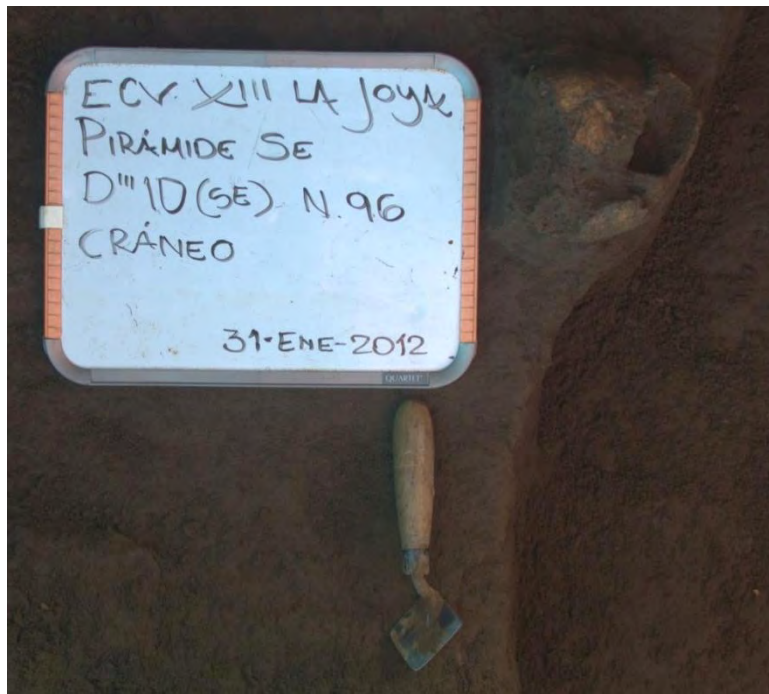 ECV XIII LA JOYA
PIRÁMIDE SE
D'''10 (SE) N.96
CRÁNEO
31-ENE-2012
QUARTET